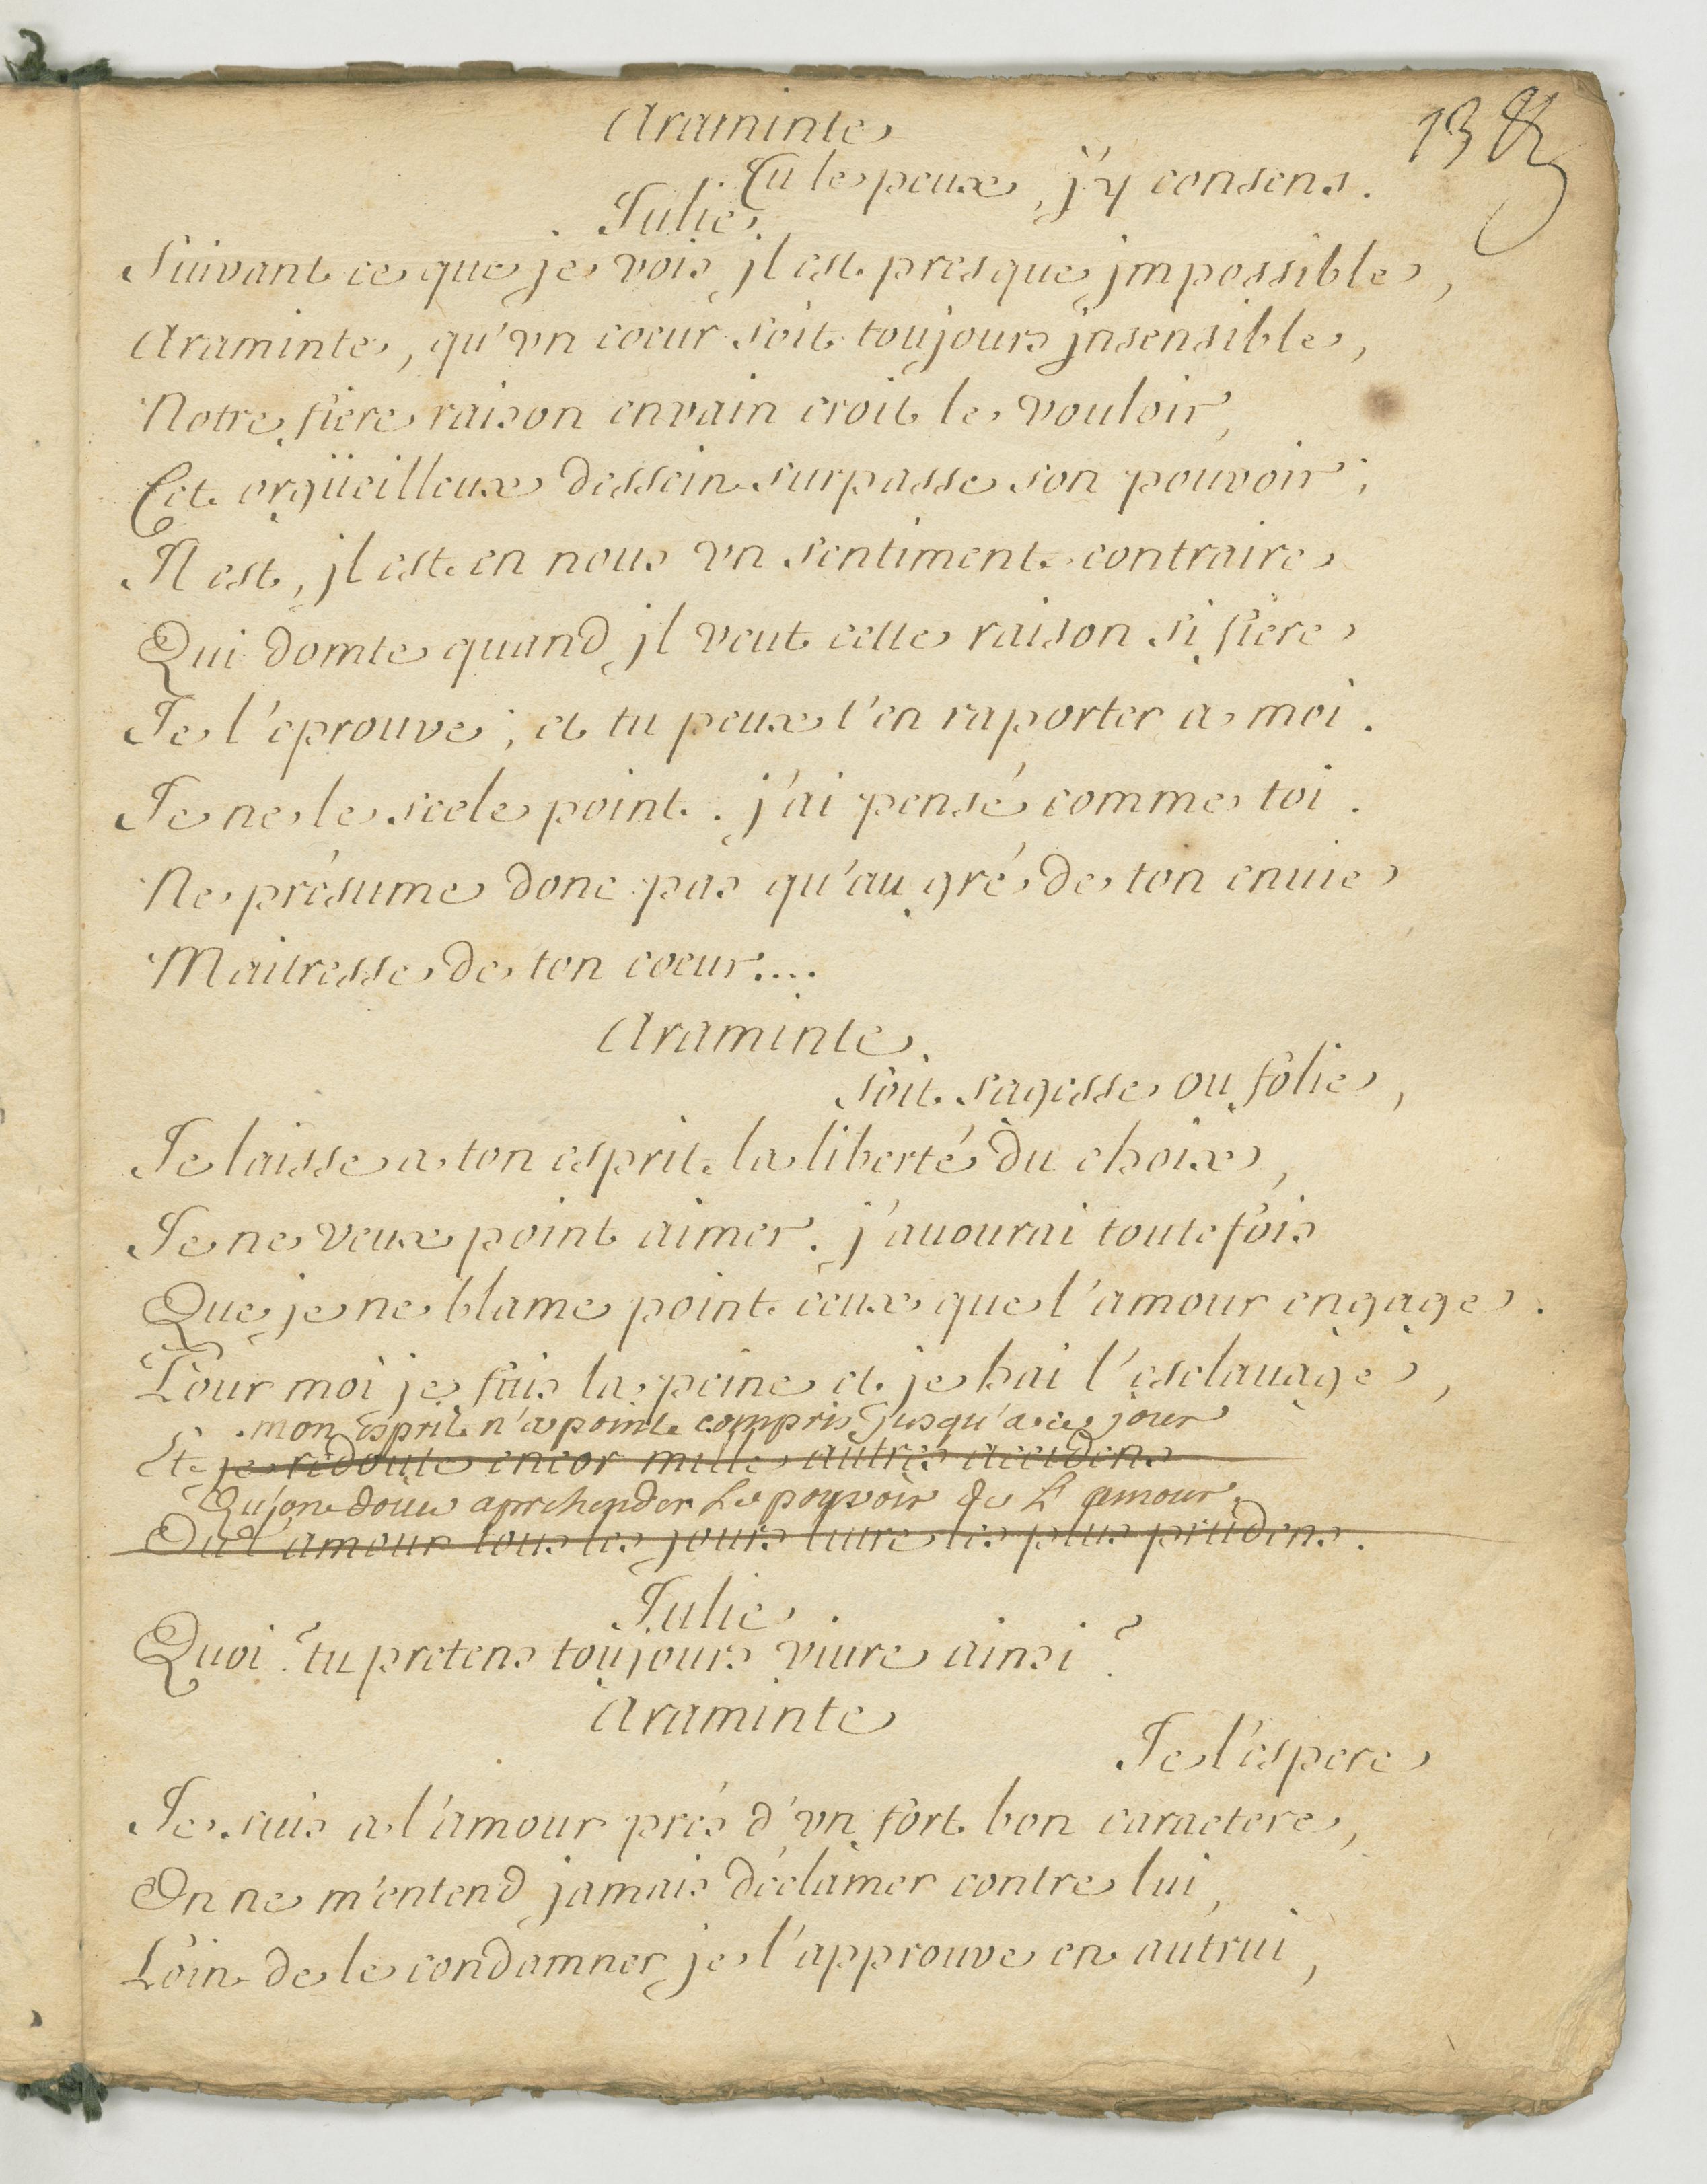 13
Araminte
Tu le peux, j'y consens.
Julie.
Suivant ce que je vois jl est presque jmpossible,
Araminte, qu'vn coeur soit toujours jnsensible,
Notre fiere raison envain croit le vouloir,
Cet orgüeilleux dessein surpasse son pouvoir;
Il est, jl est en nous vn sentiment contraire
Qui domte quand jl veut cette raison si fiere
Je l'eprouve; et tu peux t'en raporter a moi.
Je ne le scele point. j'ai pensé comme toi.
Ne présume donc pas qu'au gré de ton enuie
Maitresse de ton coeur....
Araminte.
Soit sagesse ou folie,
Je laisse a ton esprit la liberté du choix,
Je ne veux point aimer. j'auourai toutefois
Que je ne blame point ceux que l'amour engage.
Pour moi je fuis la peine et je hai l'esclauage,
mon Esprit n'a point compris jusqu'a ce jour
Et je redoute encor mille autres accidens
Qu'on doiue aprehender Le pouvoir de L'amour.
Ou l'amour tous les jours liure les plus prudens.
Julie.
Quoi? tu pretens toujours viure ainsi?
Araminte
Je l'espere
Je suis a l'amour prés d'vn fort bon caractere,
On ne m'entend jamais déclamer contre lui,
Loin de le condamner je l'approuve en autrui,